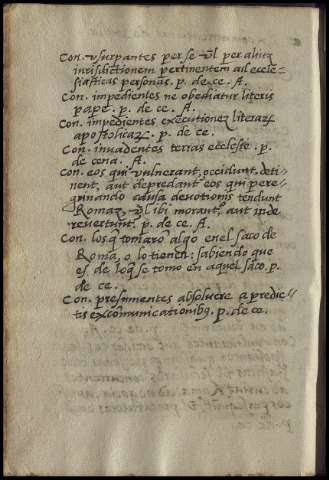 Con. vsurpantes per se vl per alios
iurisdictionem pertinentem ad eccle=
siasticas personas. p. de. ce. A.
Con. impedientes ne obediatur literis
pape. p. de ce. A.
Con. impedientes executionez literaꝝ
apostolicaꝝ. p. de ce.
Con. inuadentes terras ecclesie. p.
de cena. A.
Con. eos qui vulnerant, occidunt, deti-
nent, aut depredant eos qui pere-
grinando causa deuotionis tendunt
Romaz, vl ibi morant, aut inde
reuertunt. p. de ce. A.
Con. los q̃ tomarõ algo en el saco de
Roma, o lo tienen: sabiendo que
es de lo q̃ se tomo en aquel saco. p.
de ce.
Con. presumentes absoluere a predic-
tis excomunicationibꝰ. p. de ce.